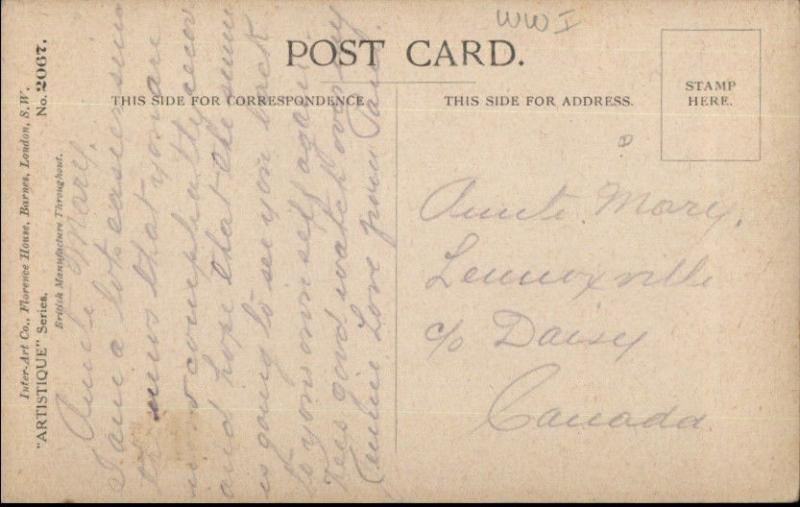 WWI
POST CARD.
THIS SIDE FOR CORRESPONDENCE.
THIS SIDE FOR ADDRESS.
STAMP
HERE.
Inter-Art Co., Florence House, Barnes, London, S.W.
"ARTISTIQUE" Series. No. 2067.
British Manufacture Throughout.
Aunt Mary,
I am a lot easier
the news that you are
completly
and hope that the
is going to see you back
to again
good watch over
Love from
Aunt Mary,
Lennoxville
c/o Daisy
Canada